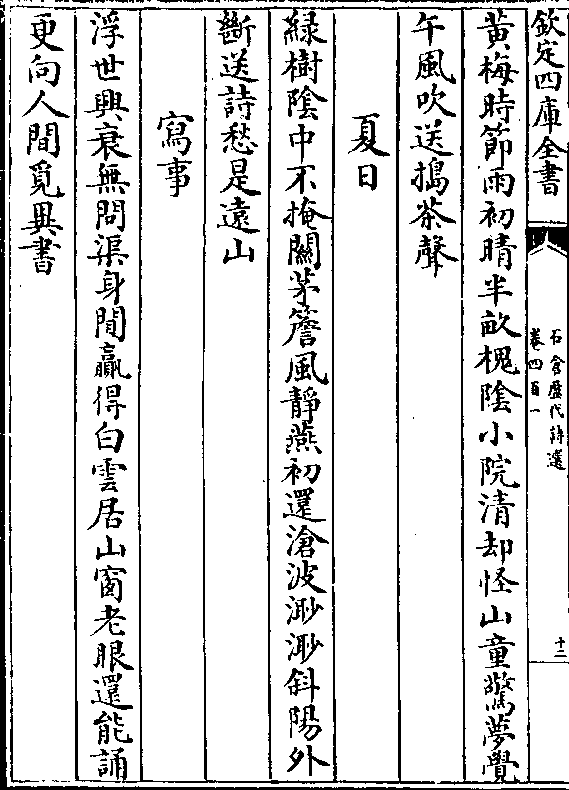 欽定四庫全書
石倉歷代詩選
卷四百一
十二
黄梅時節雨初晴半畝槐陰小院清却怪山童驚夢覺
午風吹送搗茶聲
夏日
緑樹陰中不掩關茅簷風靜燕初還滄波渺渺斜陽外
斷送詩愁是遠山
寫事
浮世興衰無問渠身閒贏得白雲居山窗老眼還能誦
更向人間覓異書